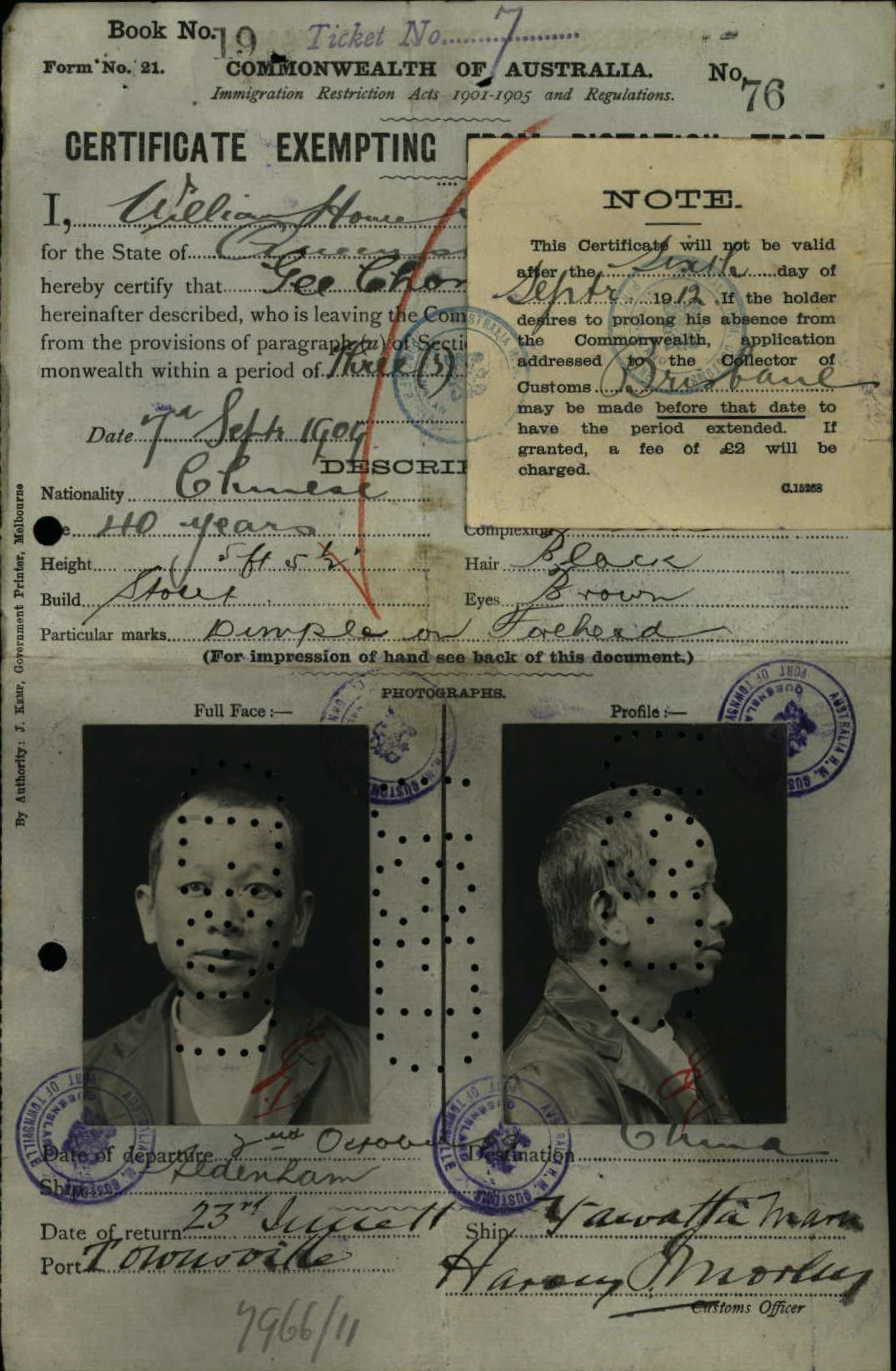 Book No. 19 Ticket No. 7
Form No. 21. COMMONWEALTH OF AUSTRALIA. No. 76
Immigration Restriction Acts 1901-1905 and Regulations.
CERTIFICATE EXEMPTING FROM DICTATION TEST
I, William Howe
for the State of Queens
hereby certify that Gee Chon
hereinafter described, who is leaving the Com
from the provisions of paragraph (a) of Secti
monwealth within a period of three (3)
Date 7th Septr 1909
DESCRI
NOTE.
This Certificate will not be valid
after the Sixth day of
Septr 1912. If the holder
desires to prolong his absence from
the Commonwealth, application
addressed to the Collector of
Customs Brisbane
may be made before that date to
have the period extended. If
granted, a fee of £2 will be
charged.
C.15268
Nationality Chinese
40 years Complexion
Height 5 ft 5 ½" Hair Black
Build Stout Eyes Brown
Particular marks Dimple on Forehead
(For impression of hand see back of this document.)
PHOTOGRAPHS.
Full Face :— Profile :—
By Authority: J. Kemp, Government Printer, Melbourne
Date of departure 2nd October 09 Destination China
Ship Aldenham
Date of return 23rd June 11 Ship Yawatta Maru
Port Townsville Harvey Morley
Customs Officer
7966/11